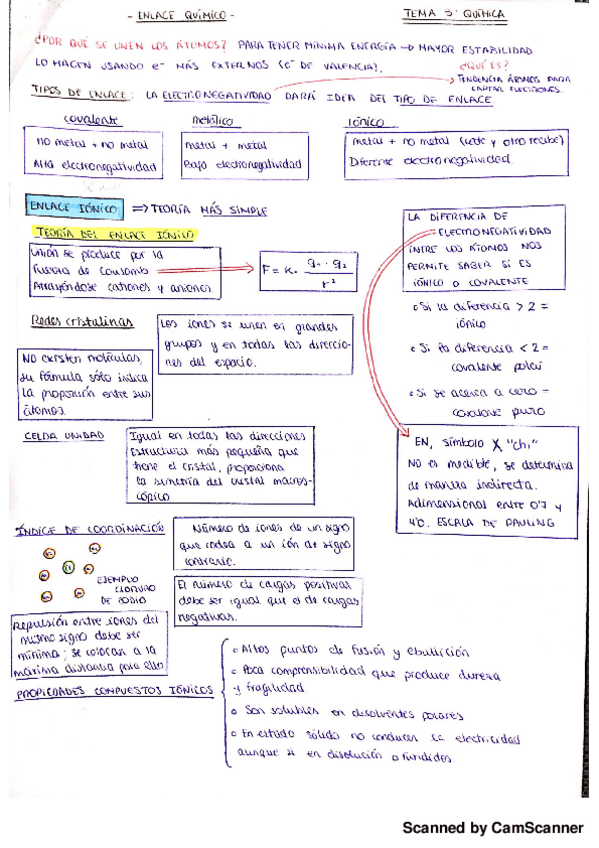 - ENLACE QUÍMICO -
TEMA 3: QUÍMICA
¿POR QUÉ SE UNEN LOS ÁTOMOS? PARA TENER MÍNIMA ENERGÍA → MAYOR ESTABILIDAD
LO HACEN USANDO e⁻ MÁS EXTERNOS (e⁻ DE VALENCIA).
¿QUÉ ES?
TENDENCIA ÁTOMOS PARA
CAPTAR ELECTRONES.
TIPOS DE ENLACE: LA ELECTRONEGATIVIDAD DARÁ IDEA DEL TIPO DE ENLACE
covalente
no metal + no metal
Alta electronegatividad
metálico
metal + metal
Baja electronegatividad
Iónico
metal + no metal (cede y otro recibe)
Diferente electronegatividad.
ENLACE IÓNICO ⇒ TEORÍA MÁS SIMPLE
TEORÍA DEL ENLACE IÓNICO
Unión se produce por la
fuerza de Coulomb
Atrayéndose cationes y aniones.
F = K · q₁ · q₂ / r²
LA DIFERENCIA DE
ELECTRONEGATIVIDAD
ENTRE LOS ÁTOMOS NOS
PERMITE SABER SI ES
IÓNICO O COVALENTE
Si la diferencia > 2 =
iónico
Si la diferencia < 2 =
covalente polar
Si se acerca a cero =
covalente puro
Redes cristalinas
Los iones se unen en grandes
grupos y en todas las direccio-
nes del espacio.
NO existen moléculas,
su fórmula sólo indica
la proporción entre sus
átomos.
CELDA UNIDAD
Igual en todas las direcciones
Estructura más pequeña que
tiene el cristal, proporciona
la simetría del cristal macros-
cópico
EN, símbolo χ "chi"
NO es medible, se determina
de manera indirecta.
Adimensional entre 0'7 y
4'0. ESCALA DE PAULING
ÍNDICE DE COORDINACIÓN
EJEMPLO
CLORURO
DE SODIO
Número de iones de un signo
que rodea a un ión de signo
contrario.
El número de cargas positivas
debe ser igual que el de cargas
negativas.
Repulsión entre iones del
mismo signo debe ser
mínima; se colocan a la
máxima distancia para ello
PROPIEDADES COMPUESTOS IÓNICOS
Altos puntos de fusión y ebullición
Poca comprensibilidad que produce dureza
y fragilidad
Son solubles en disolventes polares
En estado sólido no conducen la electricidad
aunque si en disolución o fundidos
Scanned by CamScanner